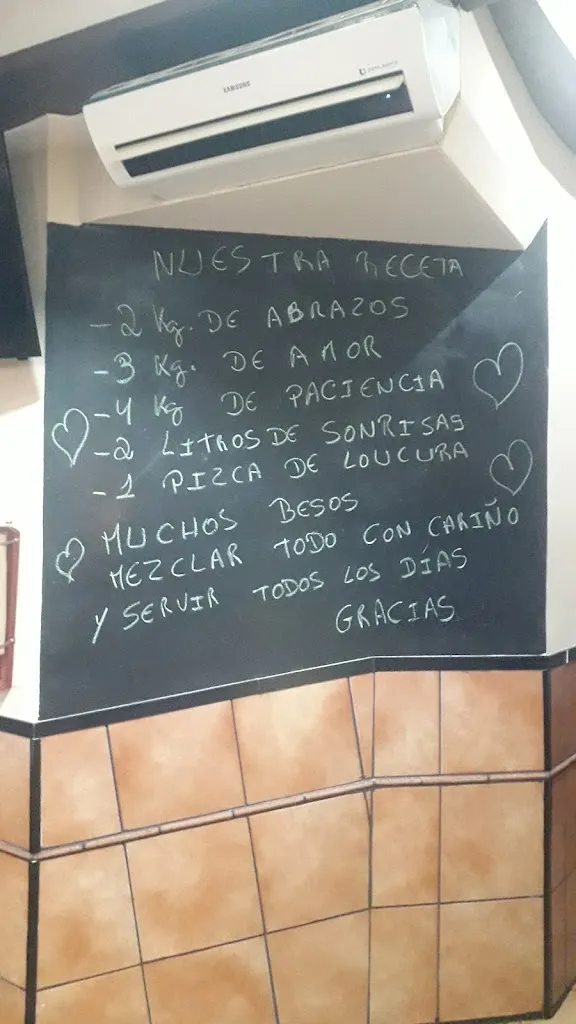 SAMSUNG
NUESTRA RECETA
-2 Kg. DE ABRAZOS
-3 Kg. DE AMOR
-4 Kg DE PACIENCIA
-2 LITROS DE SONRISAS
-1 PIZCA DE LOUCURA
MUCHOS BESOS
MEZCLAR TODO CON CARIÑO
Y SERVIR TODOS LOS DÍAS
GRACIAS